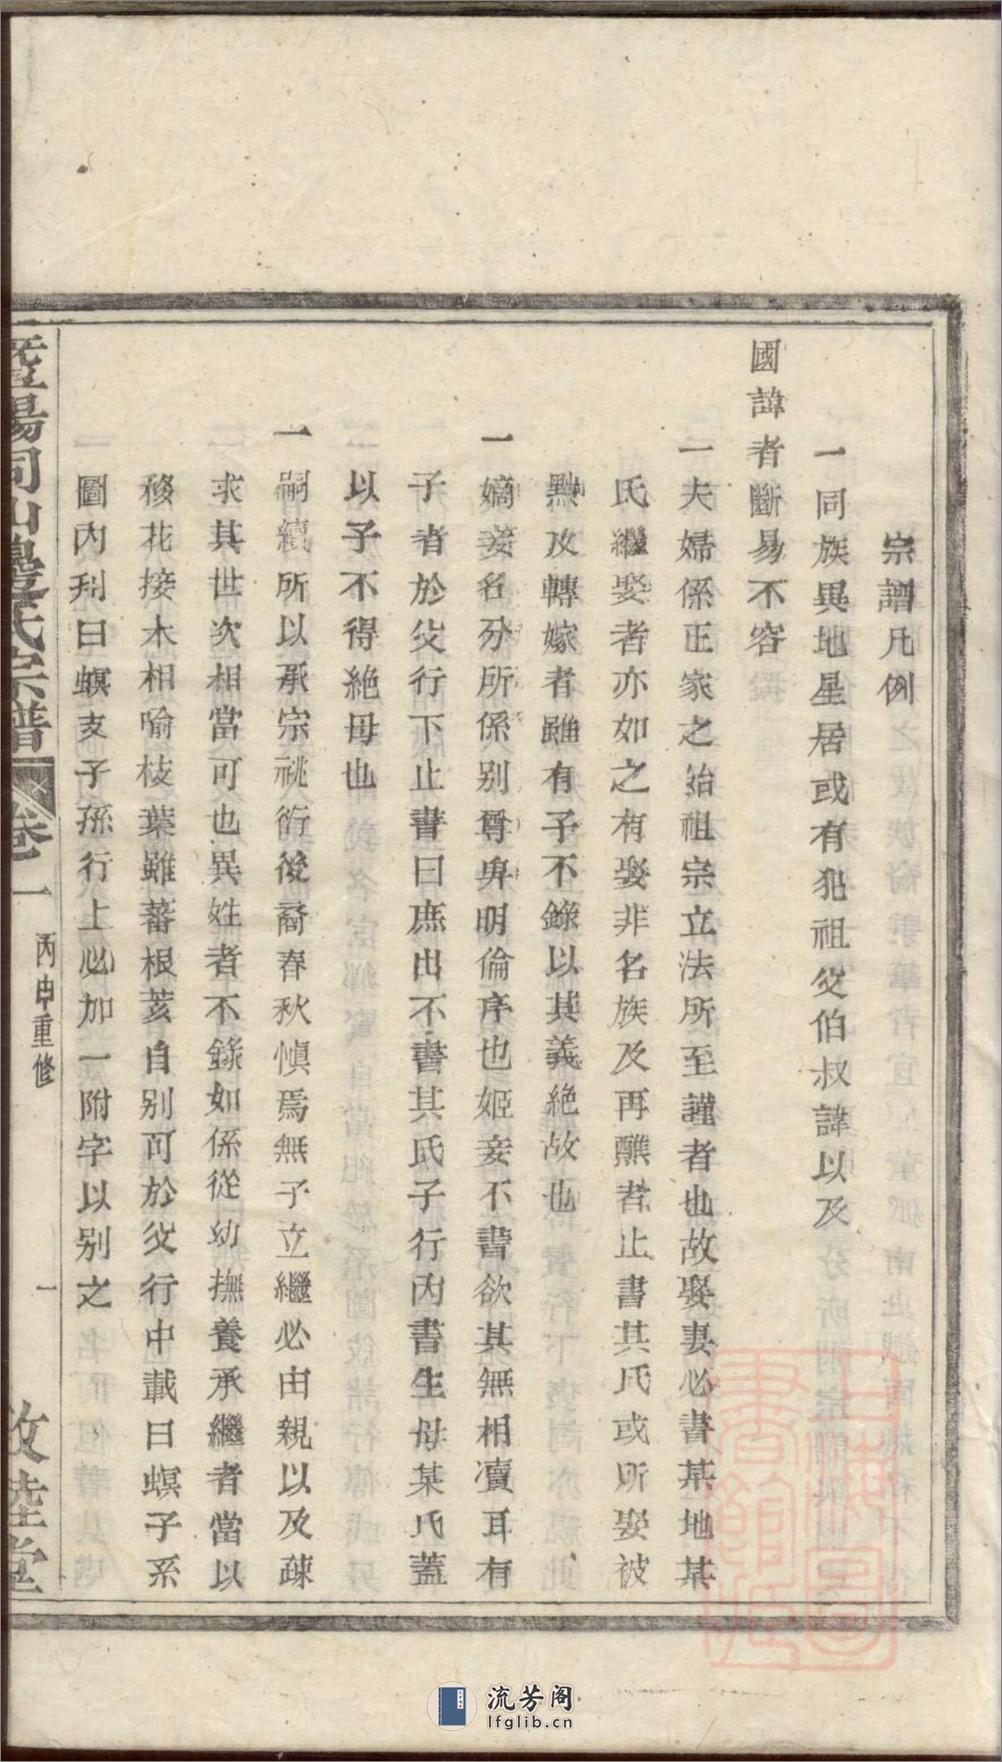 宗譜凡例
一同族異地星居或有犯祖父伯叔諱以及
國諱者斷易不容
一夫婦係正家之始祖宗立法所至謹者也故娶妻必書某地某
氏繼娶者亦如之有娶非名族及再醮者止書其氏或所娶被
黜改轉嫁者雖有子不錄以其義絶故也
一嫡妾名分所係别尊卑明倫序也姬妾不書欲其無相凟耳有
子者於父行下止書曰庶出不書其氏子行内書生母某氏蓋
以子不得絶母也
一嗣續所以承宗祧衍後裔春秋慎焉無子立繼必由親以及疎
求其世次相當可也異姓者不錄如係從幼撫養承繼者當以
移花接木相喻枝葉雖蕃根荄自别可於父行中載曰螟子系
圖内刋曰螟支子孫行上必加一附字以别之
暨陽同山邊氏宗譜
卷一
丙申重修
一
敦睦堂
流芳阁
lfglib.cn